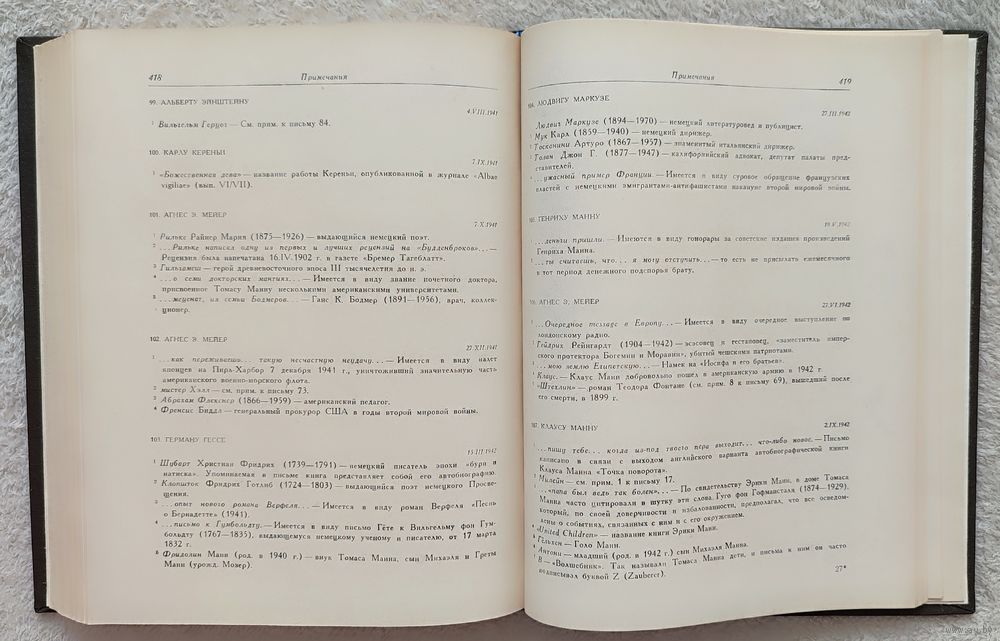 418
Примечания
99. АЛЬБЕРТУ ЭЙНШТЕЙНУ
4.VIII.1941
¹ Вильгельм Герцог — См. прим. к письму 84.
100. КАРЛУ КЕРЕНЬИ
7.IX.1941
¹ «Божественная дева» — название работы Кереньи, опубликованной в журнале «Albae
vigiliae» (вып. VI/VII).
101. АГНЕС Э. МЕЙЕР
7.X.1941
¹ Рильке Райнер Мария (1875—1926) — выдающийся немецкий поэт.
² ...Рильке написал одну из первых и лучших рецензий на «Будденброков»... —
Рецензия была напечатана 16.IV.1902 г. в газете «Бремер Тагеблатт».
³ Гильгамеш — герой древневосточного эпоса III тысячелетия до н. э.
⁴ ...о семи докторских мантиях... — Имеется в виду звание почетного доктора,
присвоенное Томасу Манну несколькими американскими университетами.
⁵ ...меценат, из семьи Бодмеров... — Ганс К. Бодмер (1891—1956), врач, коллек-
ционер.
102. АГНЕС Э. МЕЙЕР
27.XII.1941
¹ ...как переживешь... такую несчастную неудачу... — Имеется в виду налет
японцев на Пирл-Харбор 7 декабря 1941 г., уничтоживший значительную часть
американского военно-морского флота.
² мистер Хэлл — см. прим. к письму 73.
³ Абрахам Флекснер (1866—1959) — американский педагог.
⁴ Френсис Биддл — генеральный прокурор США в годы второй мировой войны.
103. ГЕРМАНУ ГЕССЕ
15.III.1942
¹ Шубарт Христиан Фридрих (1739—1791) — немецкий писатель эпохи «бури и
натиска». Упоминаемая в письме книга представляет собой его автобиографию.
² Клопшток Фридрих Готлиб (1724—1803) — выдающийся поэт немецкого Просве-
щения.
³ ...опыт нового романа Верфеля... — Имеется в виду роман Верфеля «Песнь
о Бернадетте» (1941).
⁴ ...письмо к Гумбольдту. — Имеется в виду письмо Гёте к Вильгельму фон Гум-
больдту (1767—1835), выдающемуся немецкому ученому и писателю, от 17 марта
1832 г.
⁵ Фридолин Манн (род. в 1940 г.) — внук Томаса Манна, сын Михаэля и Греты
Манн (урожд. Мозер).
Примечания
419
104. ЛЮДВИГУ МАРКУЗЕ
27.III.1942
Людвиг Маркузе (1894—1970) — немецкий литературовед и публицист.
¹ Мук Карл (1859—1940) — немецкий дирижер.
² Тосканини Артуро (1867—1957) — знаменитый итальянский дирижер.
³ Толан Джон Г. (1877—1947) — калифорнийский адвокат, депутат палаты пред-
ставителей.
⁴ ...ужасный пример Франции. — Имеется в виду суровое обращение французских
властей с немецкими эмигрантами-антифашистами накануне второй мировой войны.
105. ГЕНРИХУ МАННУ
19.V.1942
¹ ...деньги пришли. — Имеются в виду гонорары за советские издания произведений
Генриха Манна.
² ...ты считаешь, что... я могу отступить... — то есть не присылать ежемесячного
в тот период денежного подспорья брату.
106. АГНЕС Э. МЕЙЕР
27.VI.1942
¹ ...Очередное message в Европу... — Имеется в виду очередное выступление по
лондонскому радио.
² Гейдрих Рейнгардт (1904—1942) — эсэсовец и гестаповец, «заместитель импер-
ского протектора Богемии и Моравии», убитый чешскими патриотами.
³ ...мою землю Египетскую... — Намек на «Иосифа и его братьев».
⁴ Клаус. — Клаус Манн добровольно пошел в американскую армию в 1942 г.
⁵ «Штехлин» — роман Теодора Фонтане (см. прим. 8 к письму 69), вышедший после
его смерти, в 1899 г.
107. КЛАУСУ МАННУ
2.IX.1942
¹ ...пишу тебе... когда из-под твоего пера выходит... что-либо новое. — Письмо
написано в связи с выходом английского варианта автобиографической книги
Клауса Манна «Точка поворота».
² Милейн — см. прим. 1 к письму 17.
³ ...«папа был ведь так болен»... — По свидетельству Эрики Манн, в доме Томаса
Манна часто цитировали в шутку эти слова Гуго фон Гофмансталя (1874—1929),
который, по своей доверчивости и избалованности, предполагал, что все осведом-
лены о событиях, связанных с ним и с его окружением.
⁴ «United Children» — название книги Эрики Манн.
⁵ Гёльхен — Голо Манн.
⁶ Антони — младший (род. в 1942 г.) сын Михаэля Манна.
⁷ В — «Волшебник». Так называли Томаса Манна дети, и письма к ним он часто
подписывал буквой Z (Zauberer).
27*
www.ay.by